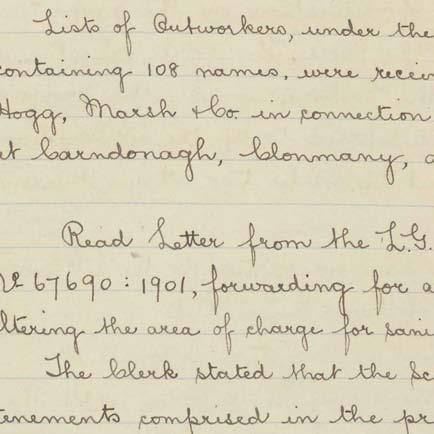 Lists of Outworkers, under the
containing 108 names, were recei
Hogg, Marsh & Co. in connection
at Carndonagh, Clonmany, a
Read Letter from the L.G.
No 67690:1901, forwarding for a
ltering the area of charge for sani
The Clerk stated that the Sc
enements comprised in the pr